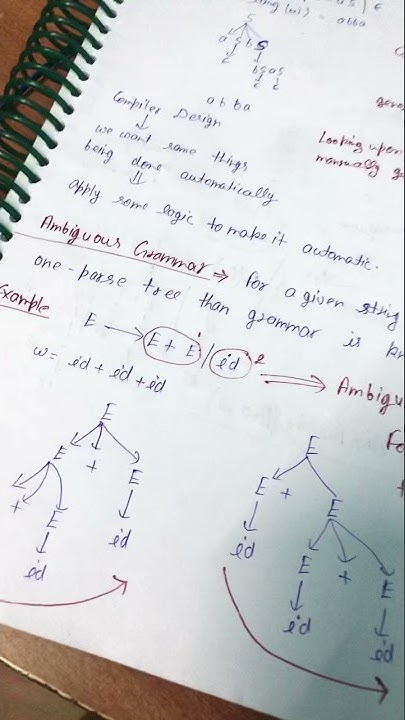 string (w) = abba
S
a S b S
ε
b S a S
ε ε
a b b a
Compiler Design
↓
we want some things
being done automatically
⇓
apply some logic to make it automatic.
Looking upon
manually
Ambiguous Grammar ⇒ For a given string
one-parse tree than grammar is
Example
E → E + E / id
1 2
⇒ Ambigu
w = id + id + id
E
E + E
+ E id
id
E
E + E
id E + E
id id